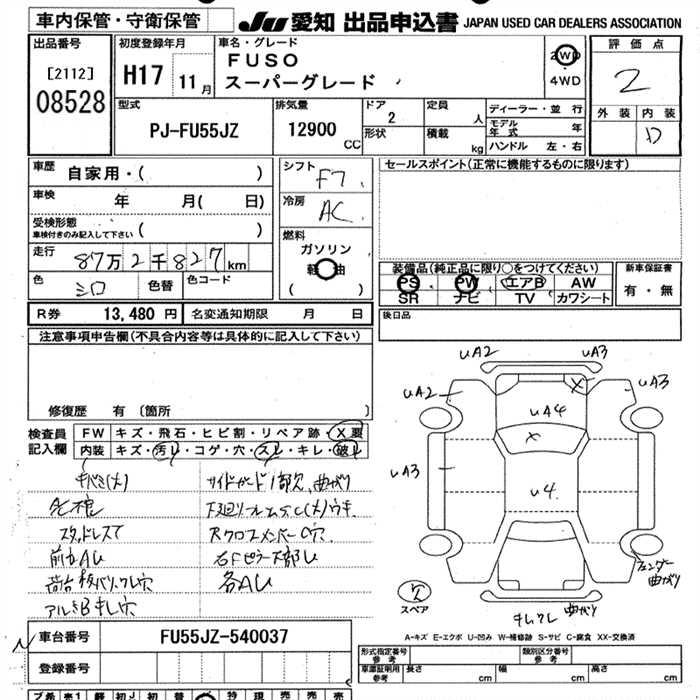 車内保管・守衛保管
JU 愛知 出品申込書 JAPAN USED CAR DEALERS ASSOCIATION
出品番号
[2112]
08528
初度登録年月
H17 11月
車名・グレード
FUSO
スーパーグレード
2WD
・
4WD
評価点
2
外装 内装
D
型式
PJ-FU55JZ
排気量
12900 CC
ドア
2
形状
定員
人
積載
kg
ディーラー・並行
モデル年式 年
ハンドル 左・右
車歴 自家用・( )
車検 年 月( 日)
受検形態
車検付きのみ記入して下さい ( )
走行 87万2千827km
色 シロ 色替 色コード
シフト F7
冷房 AC
燃料
ガソリン
軽油
( )
セールスポイント(正常に機能するものに限ります)
装備品(純正品に限り○をつけてください)
PS PW エアB AW
SR ナビ TV カワシート
新車保証書
有・無
R券 13,480 円 名変通知期限 月 日
後日品
注意事項申告欄(不具合内容等は具体的に記入して下さい)
修復歴 有 〔箇所 〕
検査員
記入欄
FW キズ・飛石・ヒビ割・リペア跡・X要
内装 キズ・汚レ・コゲ・穴・スレ・キレ・破レ
サイドガード1部欠、曲がり
スタッドレスT
各AU
アルミB キレ穴
uA2 uA3
uA2 uA3
uA4
X
X
uA3
u4
欠
スペア
フェンダー曲がり
キレワレ 曲がり
A-キズ E-エクボ U-凹み W-補修跡 S-サビ C-腐食 XX-交換済
車台番号 FU55JZ-540037
登録番号
形式指定番号
参考
類別区分番号
参考
車庫証明用
参考
長さ cm 幅 cm 高さ cm